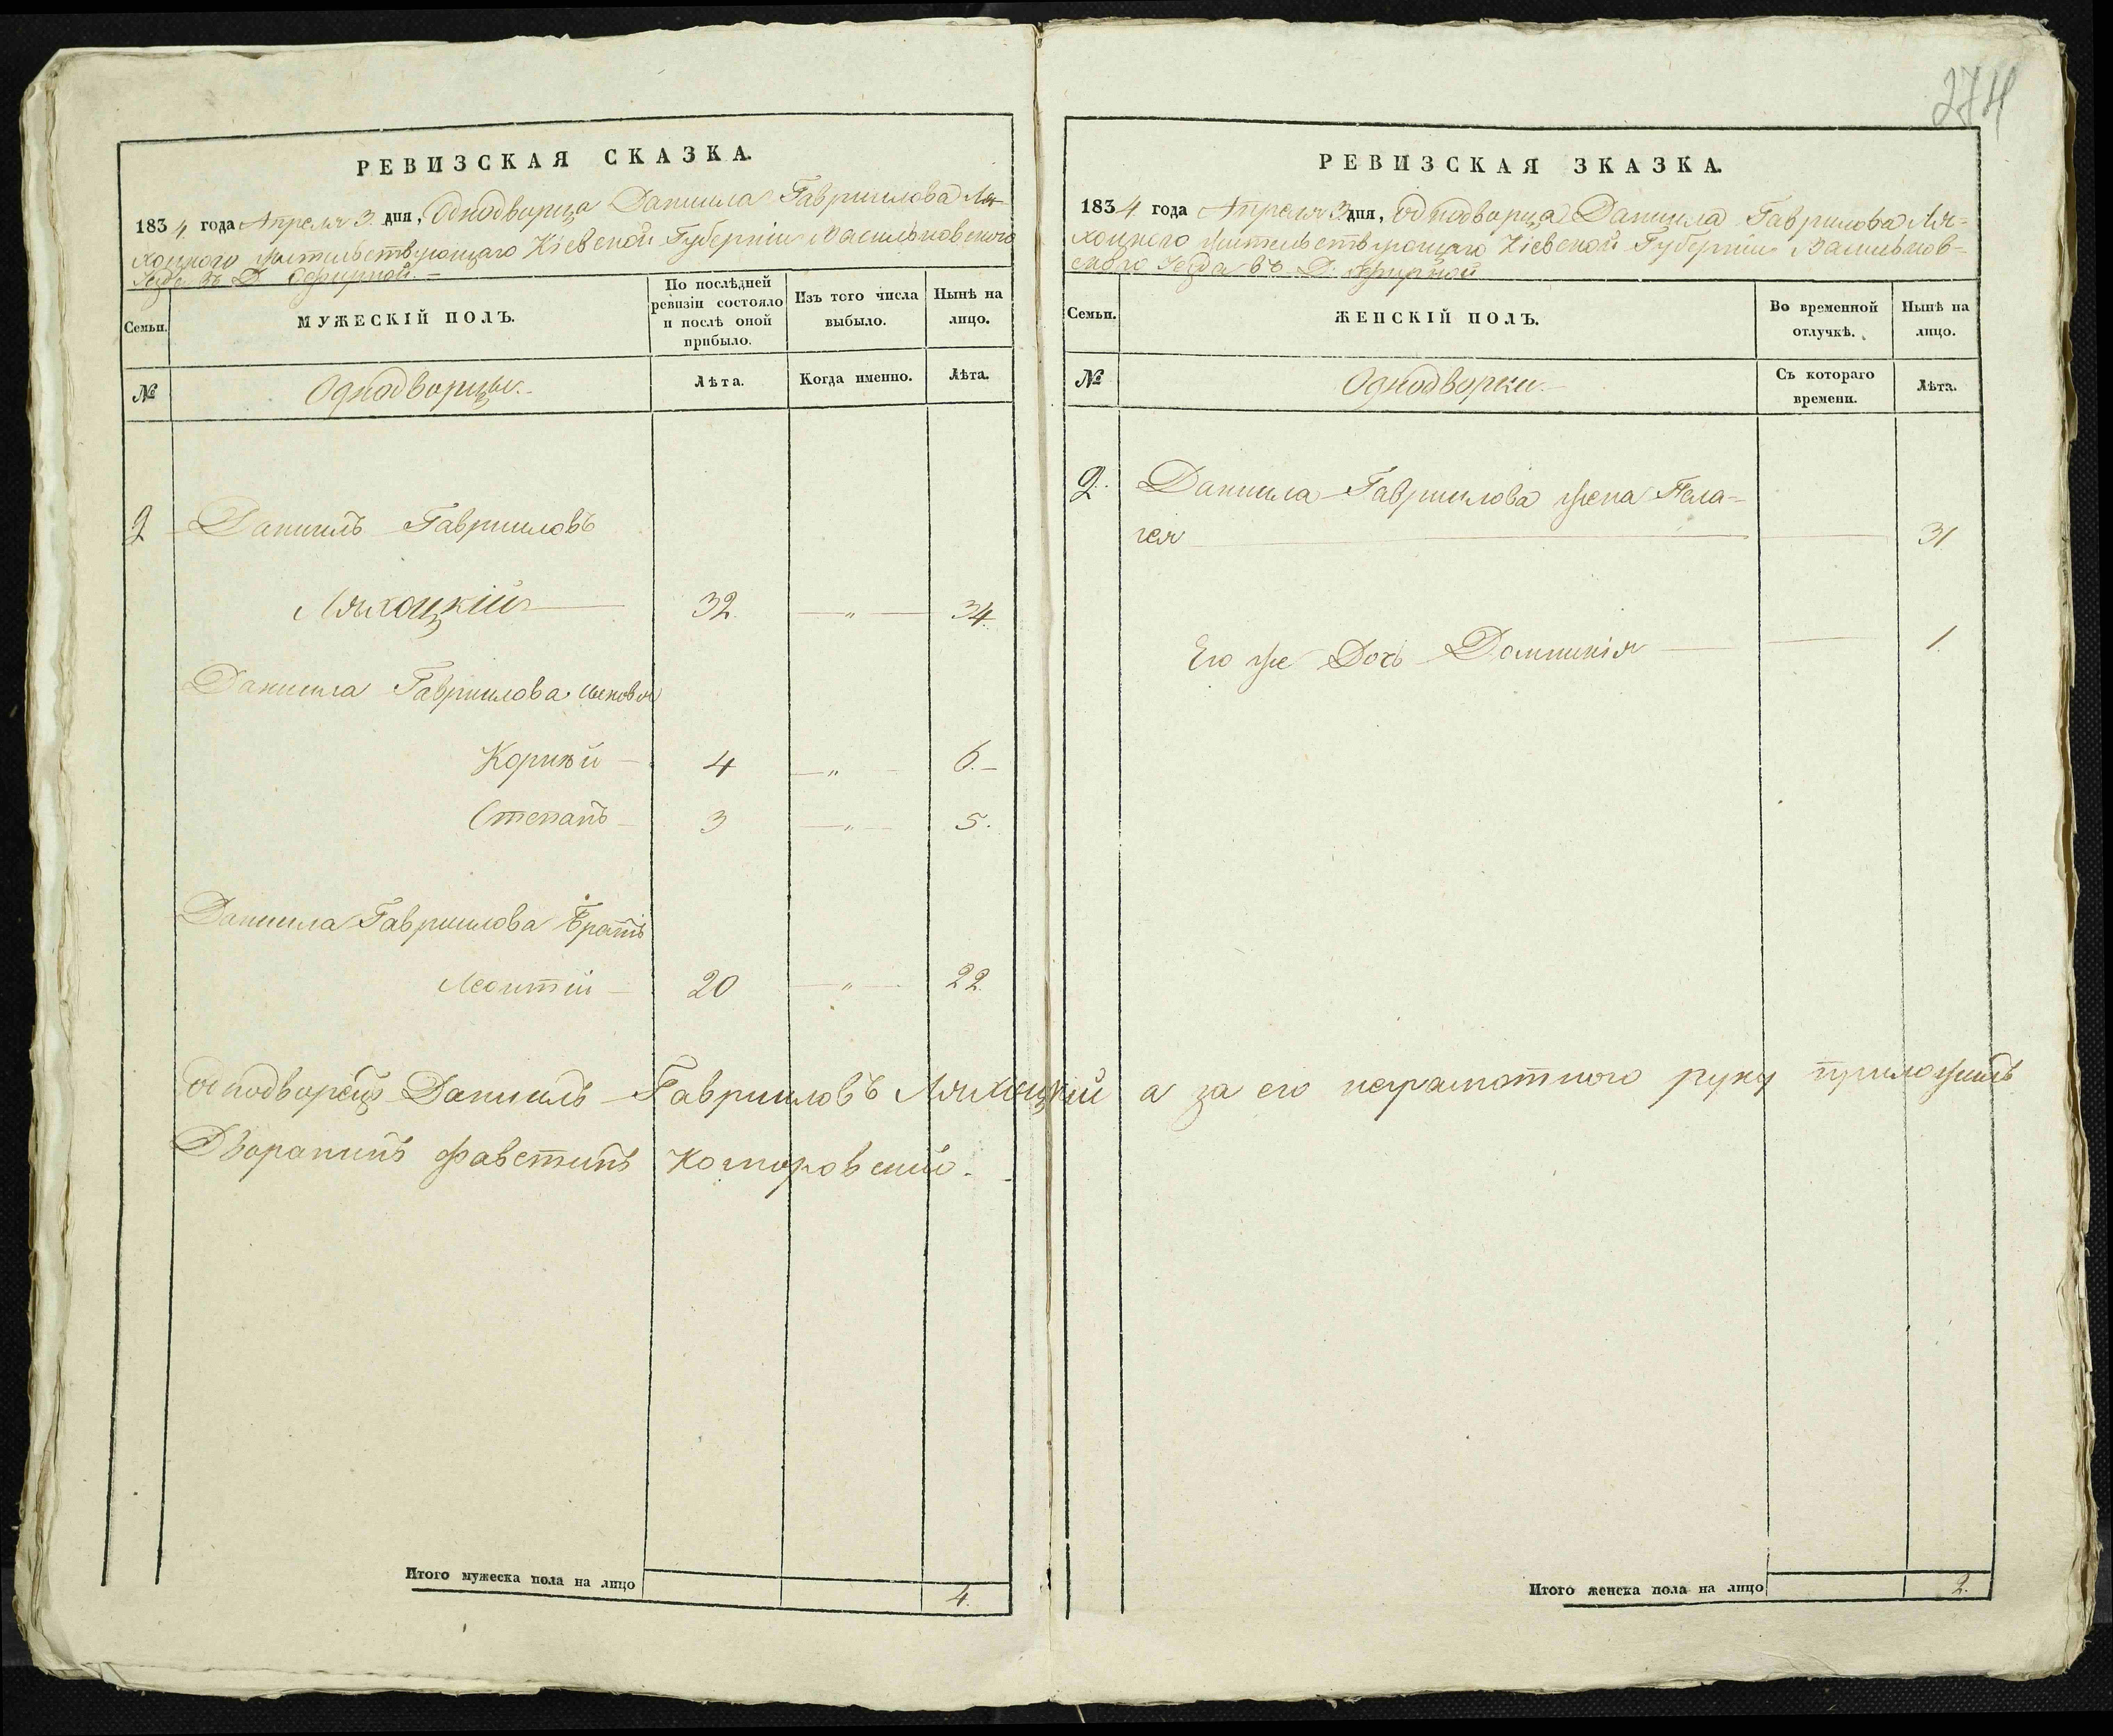 274
РЕВИЗСКАЯ СКАЗКА.
1834 года Апреля 3 дня, Однодворца Даниила Гавриилова Ля-
хоцкого жительствующаго Кіевской Губерніи Васильковского
Уезда въ Д.
Семьи.
МУЖЕСКІЙ ПОЛЪ.
По послѣдней
ревизіи состояло
и послѣ оной
прибыло.
Изъ того числа
выбыло.
Нынѣ на
лицо.
№
Однодворцы.
Лѣта.
Когда именно.
Лѣта.
2 Даниилъ Гаврииловъ
Ляхоцкій 32. " 34.
Даниила Гавриилова сыновья
Корнѣй 4 " 6.
Степанъ 3 " 5.
Даниила Гавриилова Братъ
Леонтій 20 " 22.
Однодворецъ Даниилъ Гаврииловъ Ляхоцкій а за его неграмотного руку приложилъ
Дворанинъ Фавстинъ Коморовский.
Итого мужеска пола на лицо 4.
РЕВИЗСКАЯ ЗКАЗКА.
1834 года Апреля 3 дня, Однодворца Даниила Гаврилова Ля-
хоцкого жительствующаго Кіевской Губерніи Васильков-
ского Уезда въ Д.
Семьи.
ЖЕНСКІЙ ПОЛЪ.
Во временной
отлучкѣ.
Нынѣ на
лицо.
№
Однодворки.
Съ котораго
времени.
Лѣта.
2. Даниила Гавриилова жена Пела-
гея 31
Его же Дочь Домникія 1.
Итого женска пола на лицо 2.